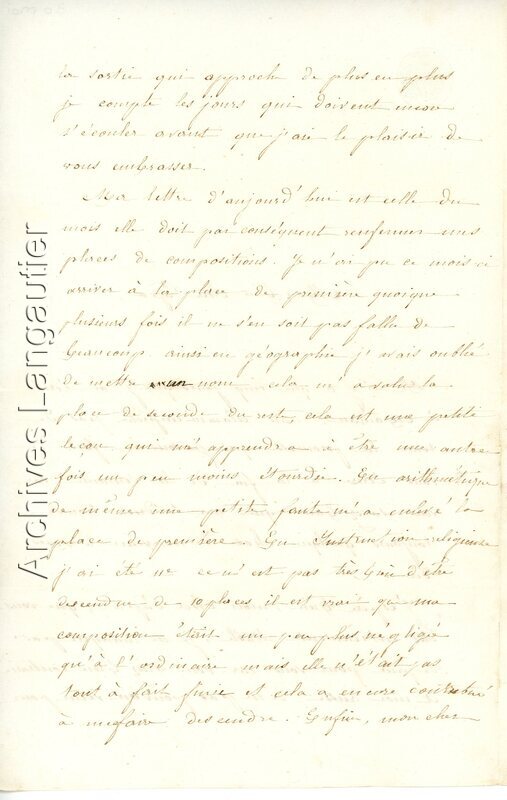 la sortie qui approche de plus en plus
je compte les jours qui doivent encore
s'écouler avant que j'aie le plaisir de
vous embrasser.
Ma lettre d'aujourd'hui est celle du
mois elle doit par conséquent renfermer mes
places de compositions. Je n'ai pu ce mois ci
arriver à la place de première quoique
plusieurs fois il ne s'en soit pas fallu de
beaucoup ainsi en géographie j'avais oublié
de mettre un nom cela m'a valu la
place de seconde du reste, cela est une petite
leçon qui m'apprendra à être une autre
fois un peu moins étourdie. En arithmétique
de même une petite faute m'a enlevé la
place de première. En Instruction religieuse
j'ai été ce n'est pas très loin d'être
descendue de 10 places il est vrai que ma
composition était un peu plus négligée
qu'à l'ordinaire mais elle n'était pas
tout à fait finie et cela a encore contribué
à me faire descendre. Enfin, mon cher
Archives Langautier